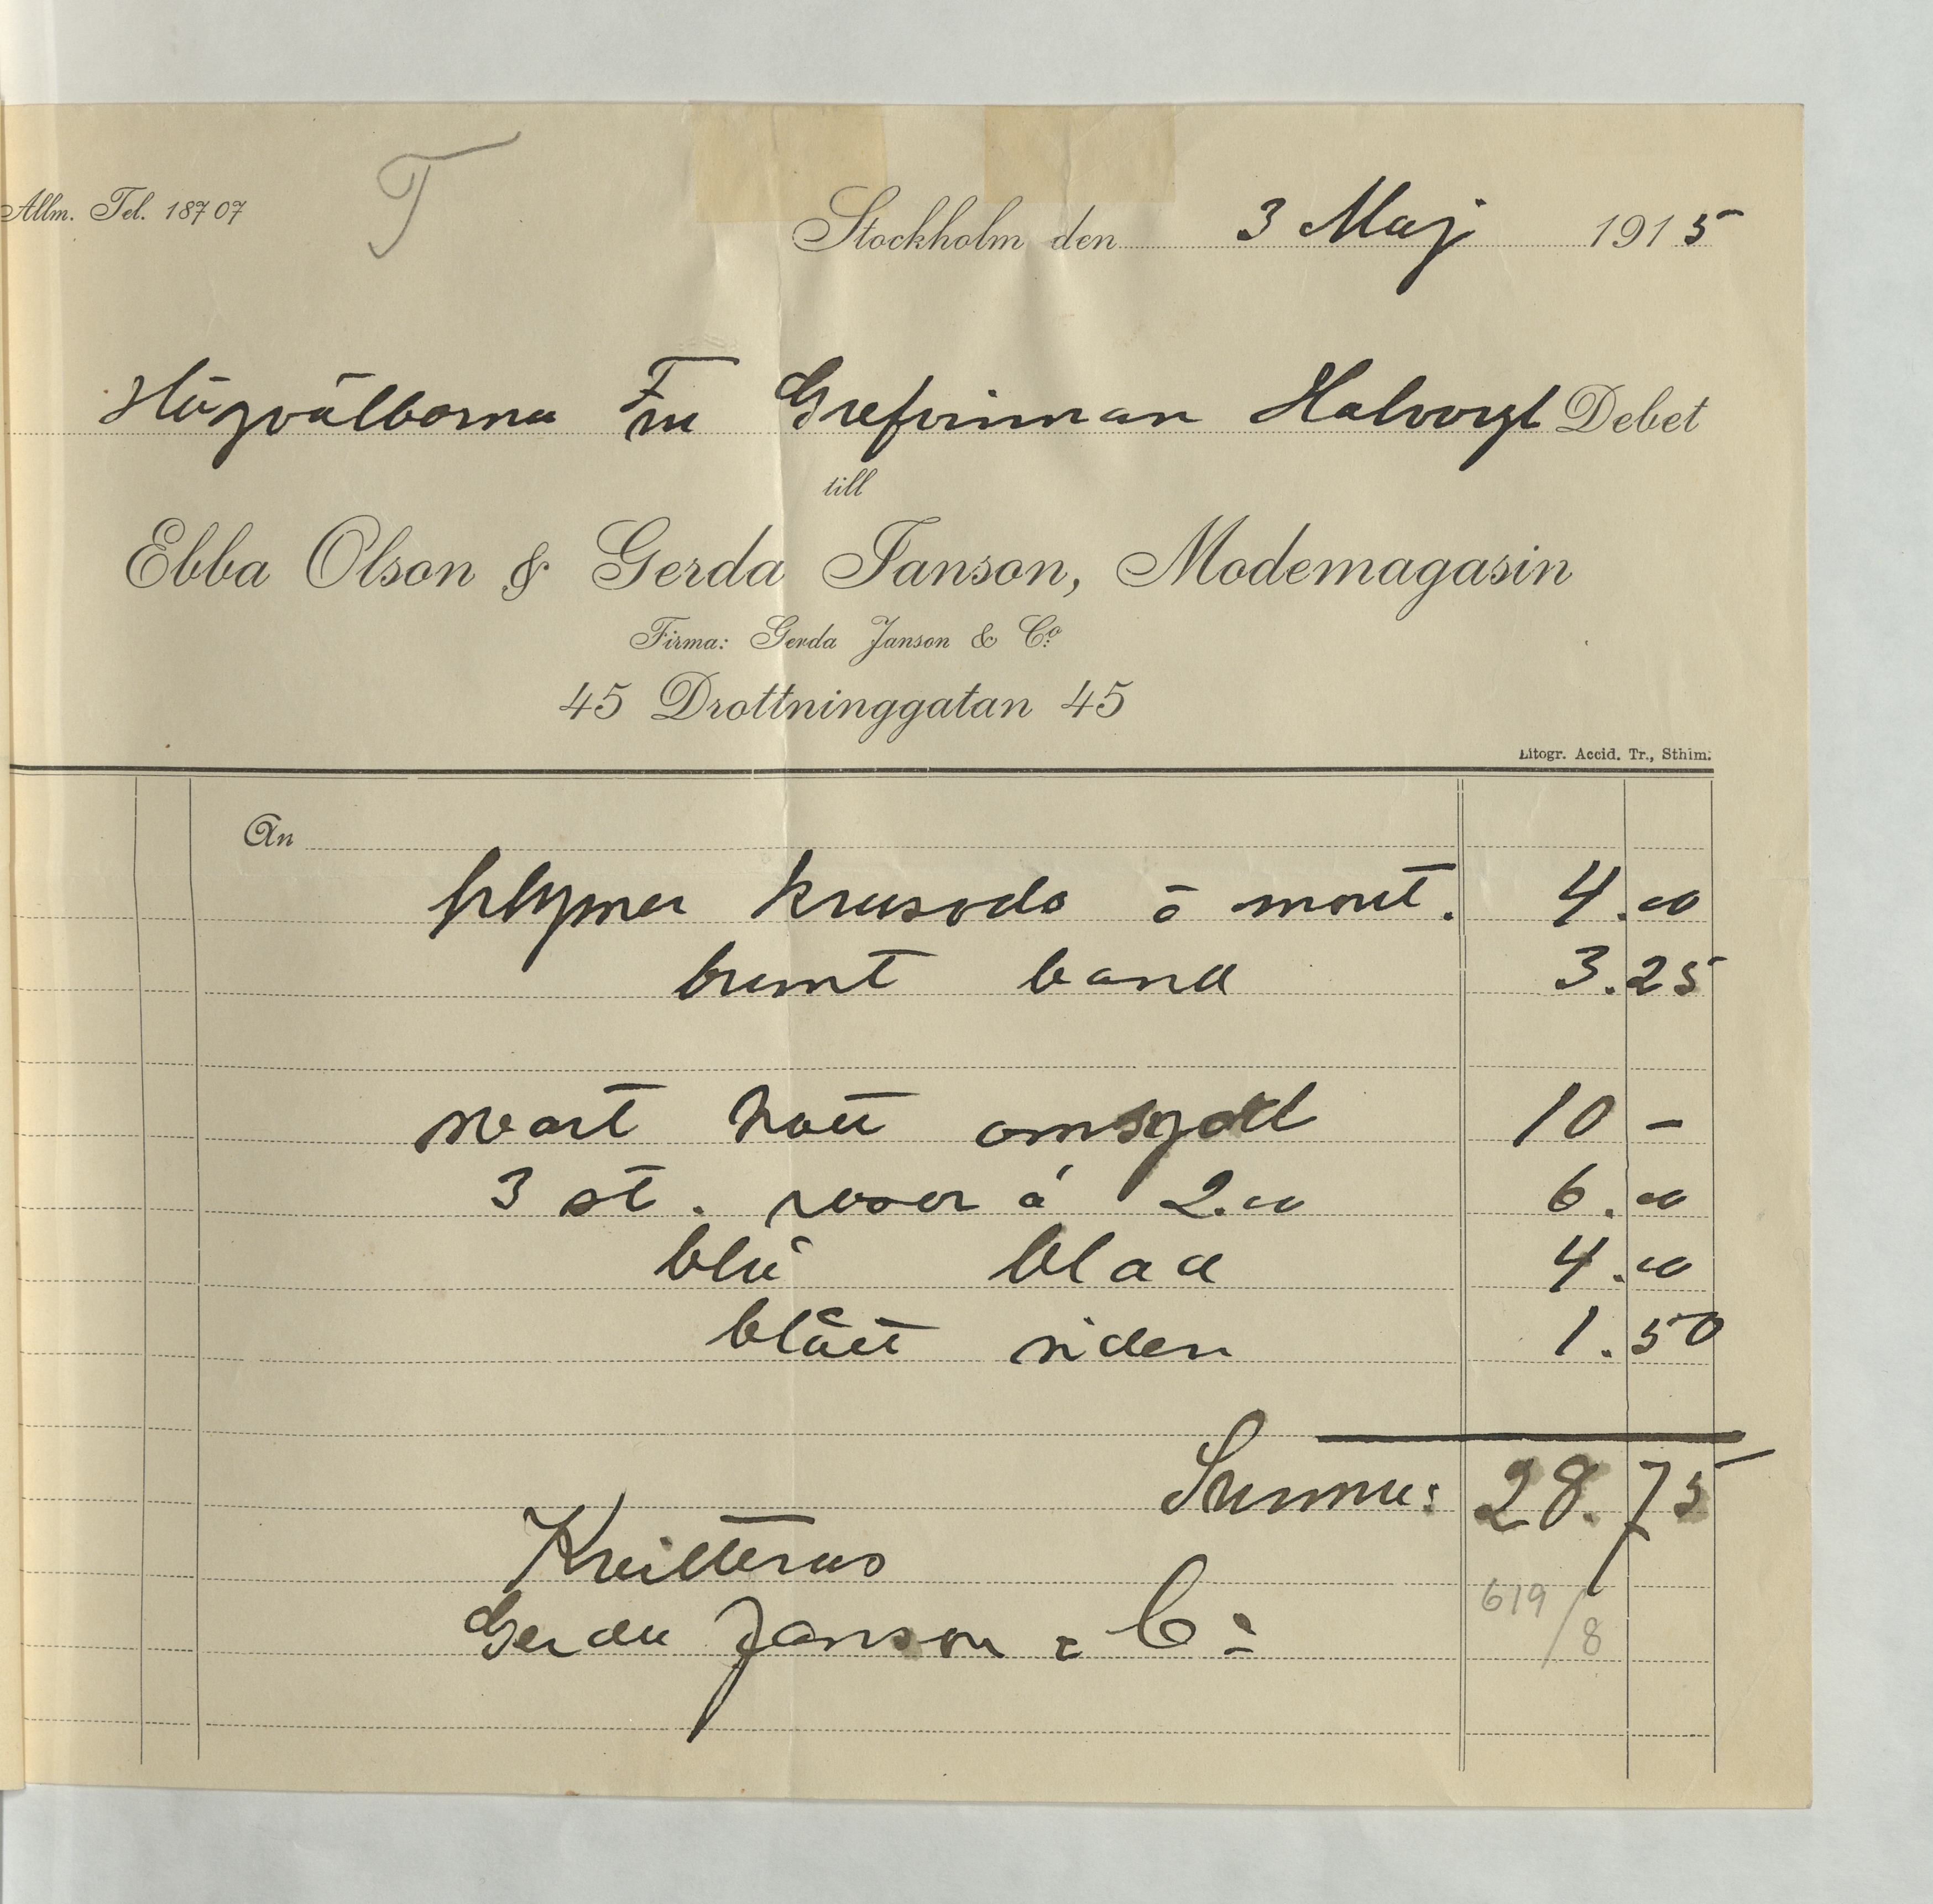 Allm. Tel. 18707
T
Stockholm den 3 Maj 1915
Högvälborna Fru Grefvinnan Halwyl Debet
till
Ebba Olson & Gerda Janson, Modemagasin
Firma: Gerda Janson & Co
45 Drottninggatan 45
Litogr. Accid. Tr., Sthlm.
An
plymer krusade o mont. 4.00
brunt band 3.25
svart hatt omsydd 10 -
3 st. rosor á 2.00 6.00
blå blad 4.00
blått siden 1.50
Summa: 28.75
Kvitteras
Gerda Janson & Co
619/8